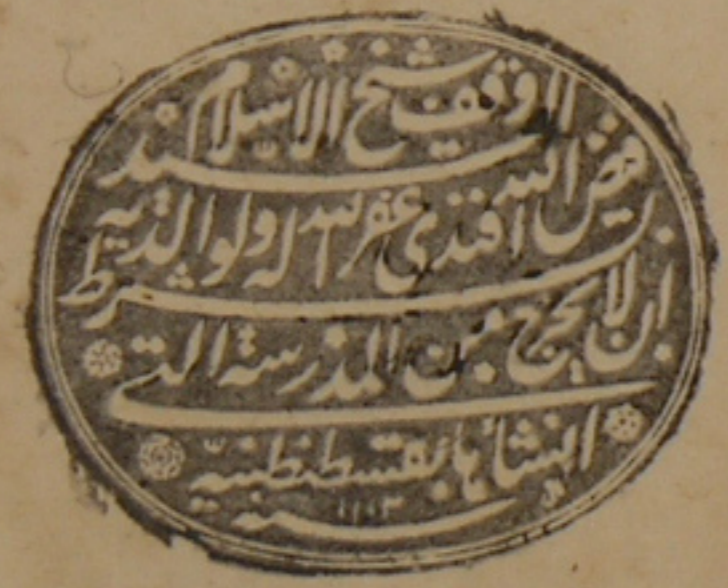 وقف شيخ الاسلام السيد
فيض الله افندى غفر الله له ولوالديه بشرط
ان لا يخرج من المدرسة التى
انشأها بقسطنطنيه
سنة ١١١٣